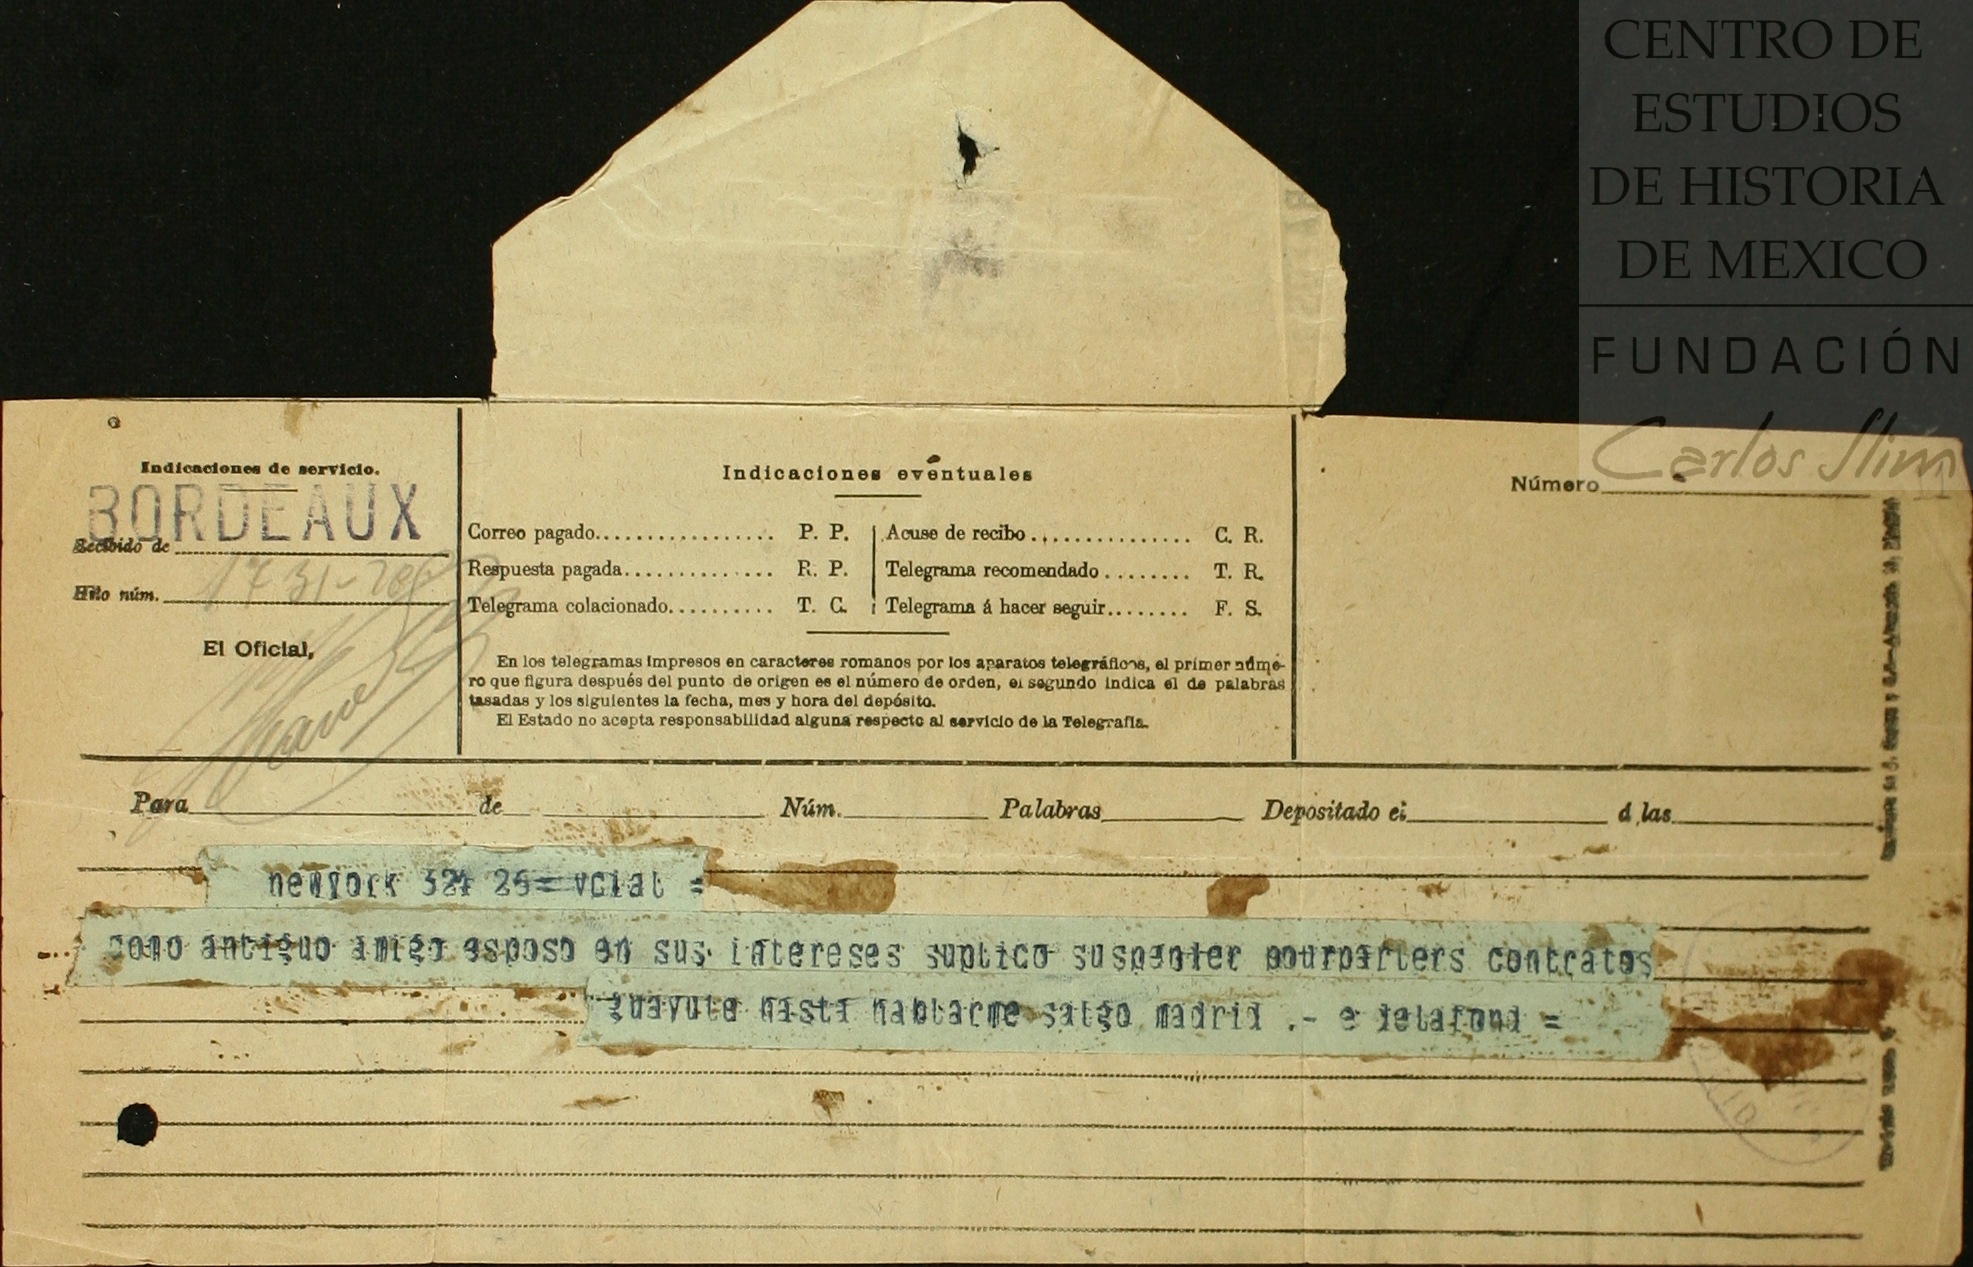 CENTRO DE
ESTUDIOS
DE HISTORIA
DE MEXICO
FUNDACIÓN
Carlos Slim
Indicaciones de servicio.
BORDEAUX
Recibido de
Hilo núm.
El Oficial,
Indicaciones eventuales
Correo pagado................. P. P.
Respuesta pagada.............. R. P.
Telegrama colacionado.......... T. C.
Acuse de recibo ............... C. R.
Telegrama recomendado ........ T. R.
Telegrama á hacer seguir........ F. S.
En los telegramas impresos en caracteres romanos por los aparatos telegráficos, el primer núme-
ro que figura después del punto de origen es el número de orden, el segundo indica el de palabras
tasadas y los siguientes la fecha, mes y hora del depósito.
El Estado no acepta responsabilidad alguna respecto al servicio de la Telegrafía.
Número
Para de Núm. Palabras Depositado el á las
newyork 26= vciat =
como antiguo amigo esposo en sus intereses suplico suspender pourparlers contratos
guayule hasta hablarme salgo madrid .- e =